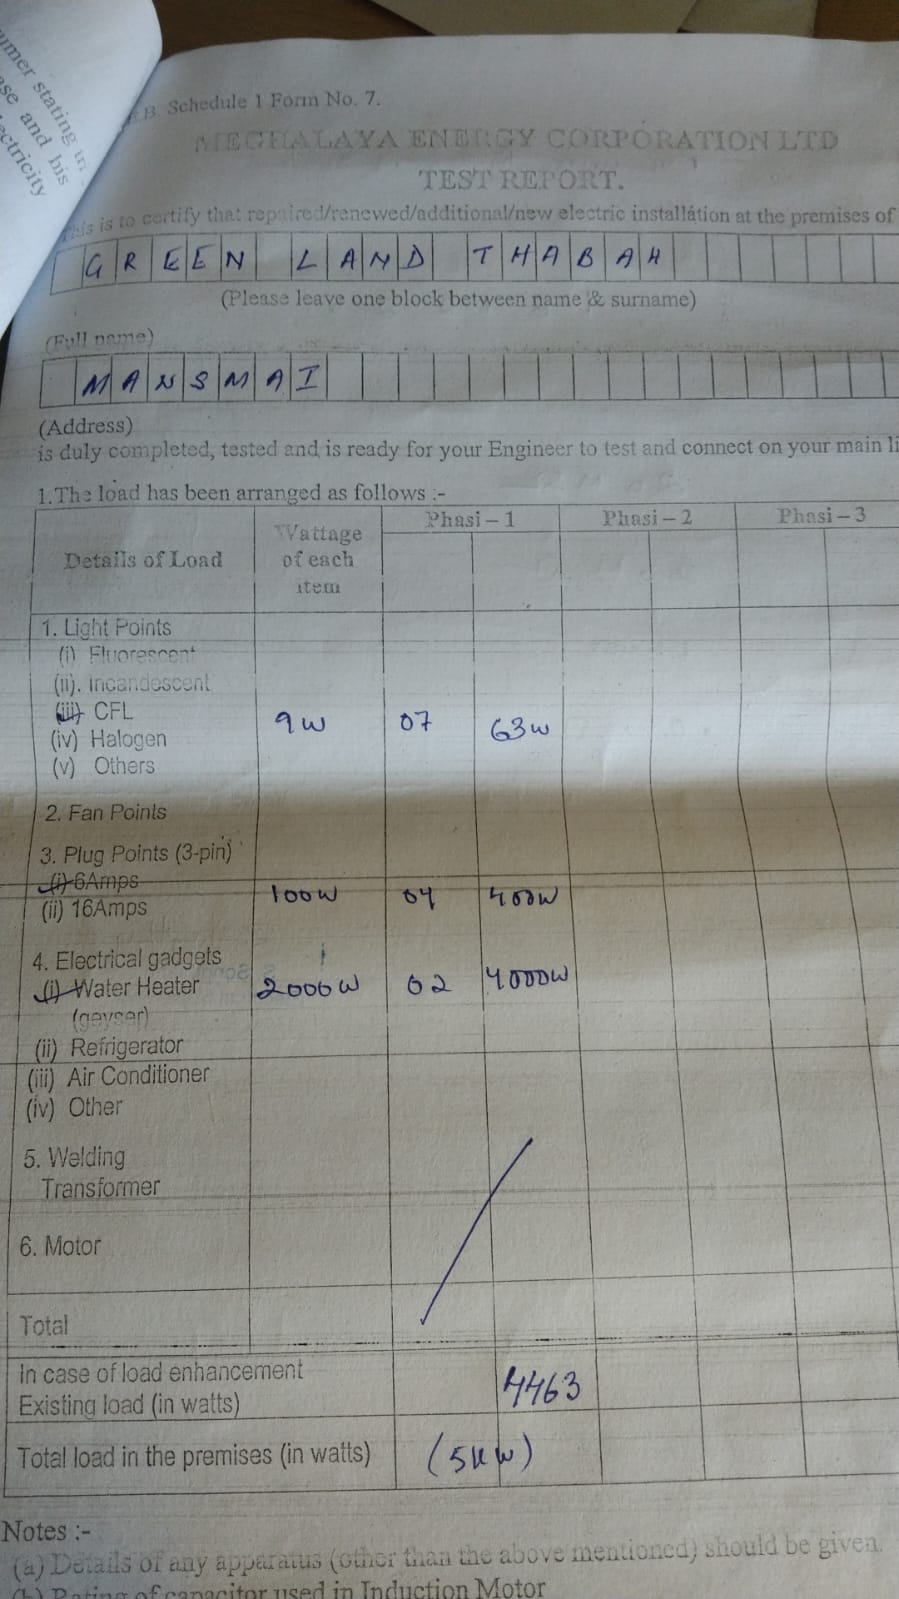 umer stating
ase and his
lectricity
E.B. Schedule 1 Form No. 7.
MEGHALAYA ENERGY CORPORATION LTD
TEST REPORT.
This is to certify that repaired/renewed/additional/new electric installation at the premises of
GREEN LAND THABAH
(Please leave one block between name & surname)
(Full name)
MANSMAI
(Address)
is duly completed, tested and is ready for your Engineer to test and connect on your main li
1.The load has been arranged as follows :-
Details of Load Wattage of each item Phasi – 1 Phasi – 2 Phasi – 3
1. Light Points
(i) Fluorescent
(ii). Incandescent
(iii) CFL 9W 07 63W
(iv) Halogen
(v) Others
2. Fan Points
3. Plug Points (3-pin)
(i) 6Amps 100W 04 400W
(ii) 16Amps
4. Electrical gadgets
(i) Water Heater 2000W 02 4000W
(geyser)
(ii) Refrigerator
(iii) Air Conditioner
(iv) Other
5. Welding
Transformer
6. Motor
Total
In case of load enhancement
Existing load (in watts) 4463
Total load in the premises (in watts) (5KW)
Notes :-
(a) Details of any apparatus (other than the above mentioned) should be given.
(b) Rating of capacitor used in Induction Motor